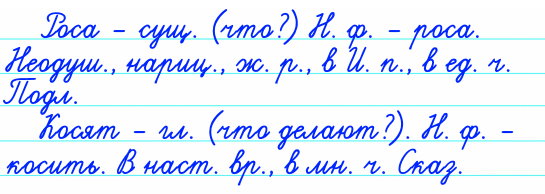 Роса – сущ. (что?) Н. ф. – роса.
Неодуш., нариц., ж. р., в И. п., в ед. ч.
Подл.
Косят – гл. (что делают?). Н. ф. –
косить. В наст. вр., в мн. ч. Сказ.